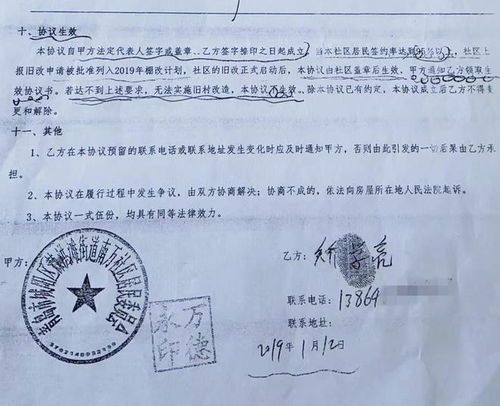 十、协议生效
本协议自甲方法定代表人签字或盖章、乙方签字捺印之日起成立，当本社区居民签约率达到95%以上，社区上
报旧改申请被批准列入2019年棚改计划，社区的旧改正式启动后，本协议由社区盖章后生效，甲方通知乙方领取生
效协议书。若达不到上述要求，无法实施旧村改造，本协议不生效。除本协议已有约定，本协议成立后乙方不得变
更和解除。
十一、其他
1、乙方在本协议预留的联系电话或联系地址发生变化时应及时通知甲方，否则由此引发的一切后果由乙方承
担。
2、本协议在履行过程中发生争议，由双方协商解决；协商不成的，依法向房屋所在地人民法院起诉。
3、本协议一式伍份，均具有同等法律效力。
甲方：
青岛市城阳区棘洪滩街道南万社区居民委员会
万德
永印
乙方：
联系电话：13864
联系地址：
2019年1月12日